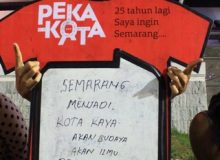 PEKA
KOTA
25 tahun lagi
Saya ingin
Semarang....
SEMARANG
MENJADI
KOTA KAYA
AKAN BUDAYA
AKAN ILMU